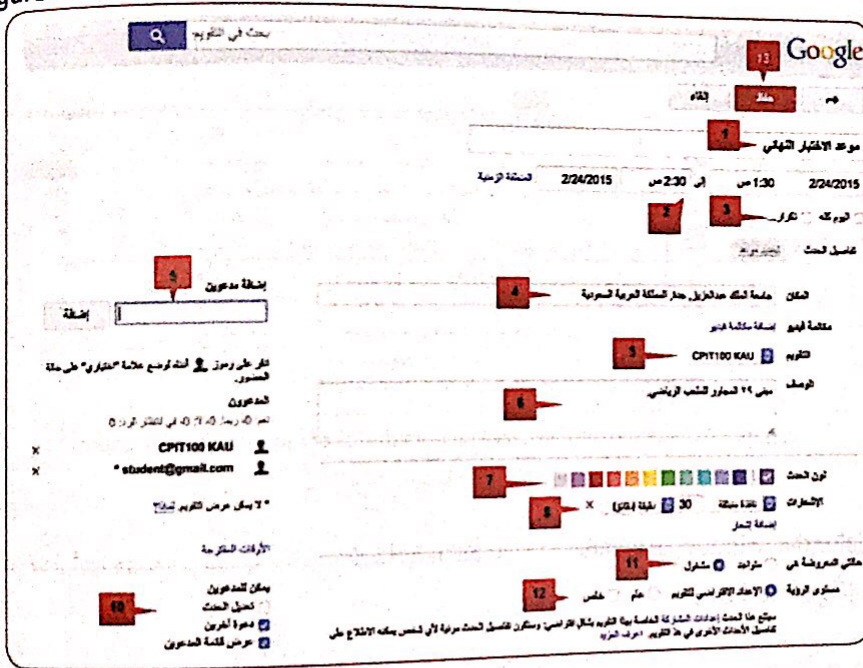 Google
بحث في التقويم
13
حفظ
إلغاء
1
موعد الاختبار النهائي
2/24/2015 1:30 ص إلى 2:30 ص 2/24/2015 المنطقة الزمنية
2
3
اليوم كله تكرار...
تفاصيل الحدث
4
المكان جامعة الملك عبدالعزيز, جدة, المملكة العربية السعودية
مكالمة فيديو إضافة مكالمة فيديو
5
التقويم CPIT100 KAU
6
الوصف مبنى ٢٩ المجاور للملعب الرياضي.
7
لون الحدث
8
الإشعارات نافذة منبثقة 30 دقيقة (دقائق) x
إضافة إشعار
11
حالتي المعروضة هي متواجد مشغول
12
مستوى الرؤية الإعداد الافتراضي للتقويم عام خاص
يتبع هذا الحدث إعدادات المشاركة الخاصة بهذا التقويم بشكل افتراضي: وستكون تفاصيل الحدث مرئية لأي شخص يمكنه الاطلاع على
تفاصيل الأحداث الأخرى في هذا التقويم. اعرف المزيد
إضافة مدعوين
إضافة
انقر على رموز أدناه لوضع علامة "اختياري" على حالة
الحضور.
المدعوون
نعم: 0، ربما: 0، لا: 0، في انتظار الرد: 0
CPIT100 KAU x
student@gmail.com * x
* لا يمكن عرض التقويم
الأوقات المقترحة
10
يمكن للمدعوين
تعديل الحدث
دعوة آخرين
عرض قائمة المدعوين